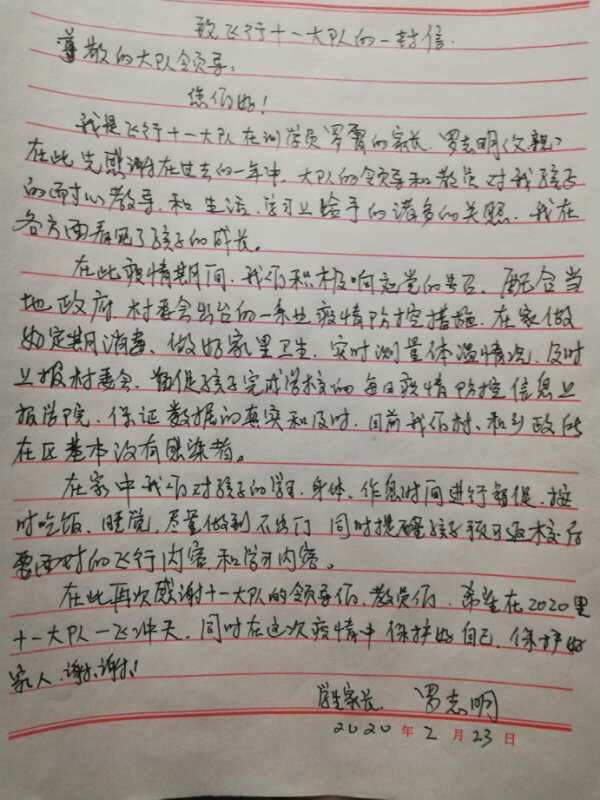 致飞行十一大队的一封信.
尊敬的大队领导:
您们好!
我是飞行十一大队在训学员罗霄的家长.罗志明(父亲)
在此先感谢在过去的一年中.大队的领导和教员对我孩子
的耐心教导.和生活.学习上给予的诸多的关照.我在
各方面看见了孩子的成长。
在此疫情期间.我们积极响应党的号召、配合当
地政府.村委会出台的一系列疫情防控措施.在家做
好定期消毒、做好家里卫生.实时测量体温情况.及时
上报村委会.督促孩子完成学校的每日疫情防控信息上
报学院.保证数据的真实和及时.目前我们村、和乡政府
在区基本没有感染者。
在家中我们对孩子的学习.身体、作息时间进行督促.按
时吃饭、睡觉,尽量做到不出门 同时提醒孩子预习返校后
要面对的飞行内容和学习内容。
在此再次感谢十一大队的领导们、教员们.希望在2020里
十一大队一飞冲天.同时在这次疫情中保护好自己.保护好
家人.谢谢!
学生家长. 罗志明
2020年2月23日